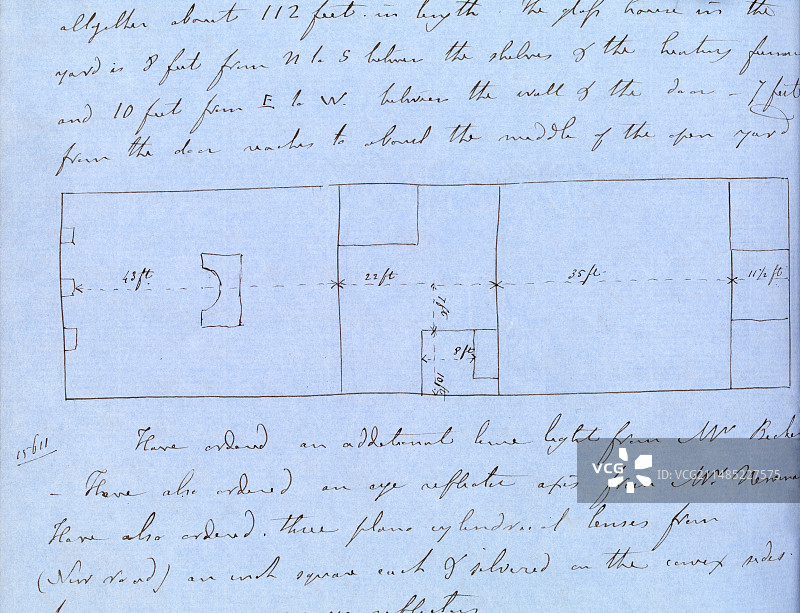 altogether about 112 feet in length. The glass house in the
yard is 8 feet from N to S between the shelves & the heating
and 10 feet from E to W. between the wall & the door - 7 feet
from the door reaches to about the middle of the open yard
43 ft. 22 ft 35 ft 11 1/2 ft
7 ft
8 ft
10 ft
15611
Have ordered an additional lime light from Mr
- Have also ordered an eye reflector from Mr
Have also ordered three plano cylindrical lenses from
(New road) an inch square each & silvered on the convex sides.
VCG
VCG
ID: